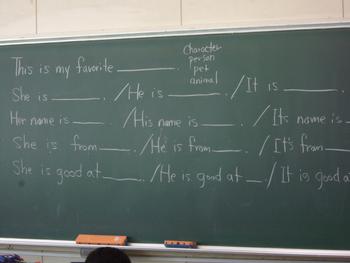 This is my favorite ______. Character
person
pet
animal
She is ______. /He is ______. /It is ______.
Her name is ______. /His name is ______. /Its name is
She is from ______. /He is from ______. /It's from
She is good at ______. /He is good at __ /It is good a